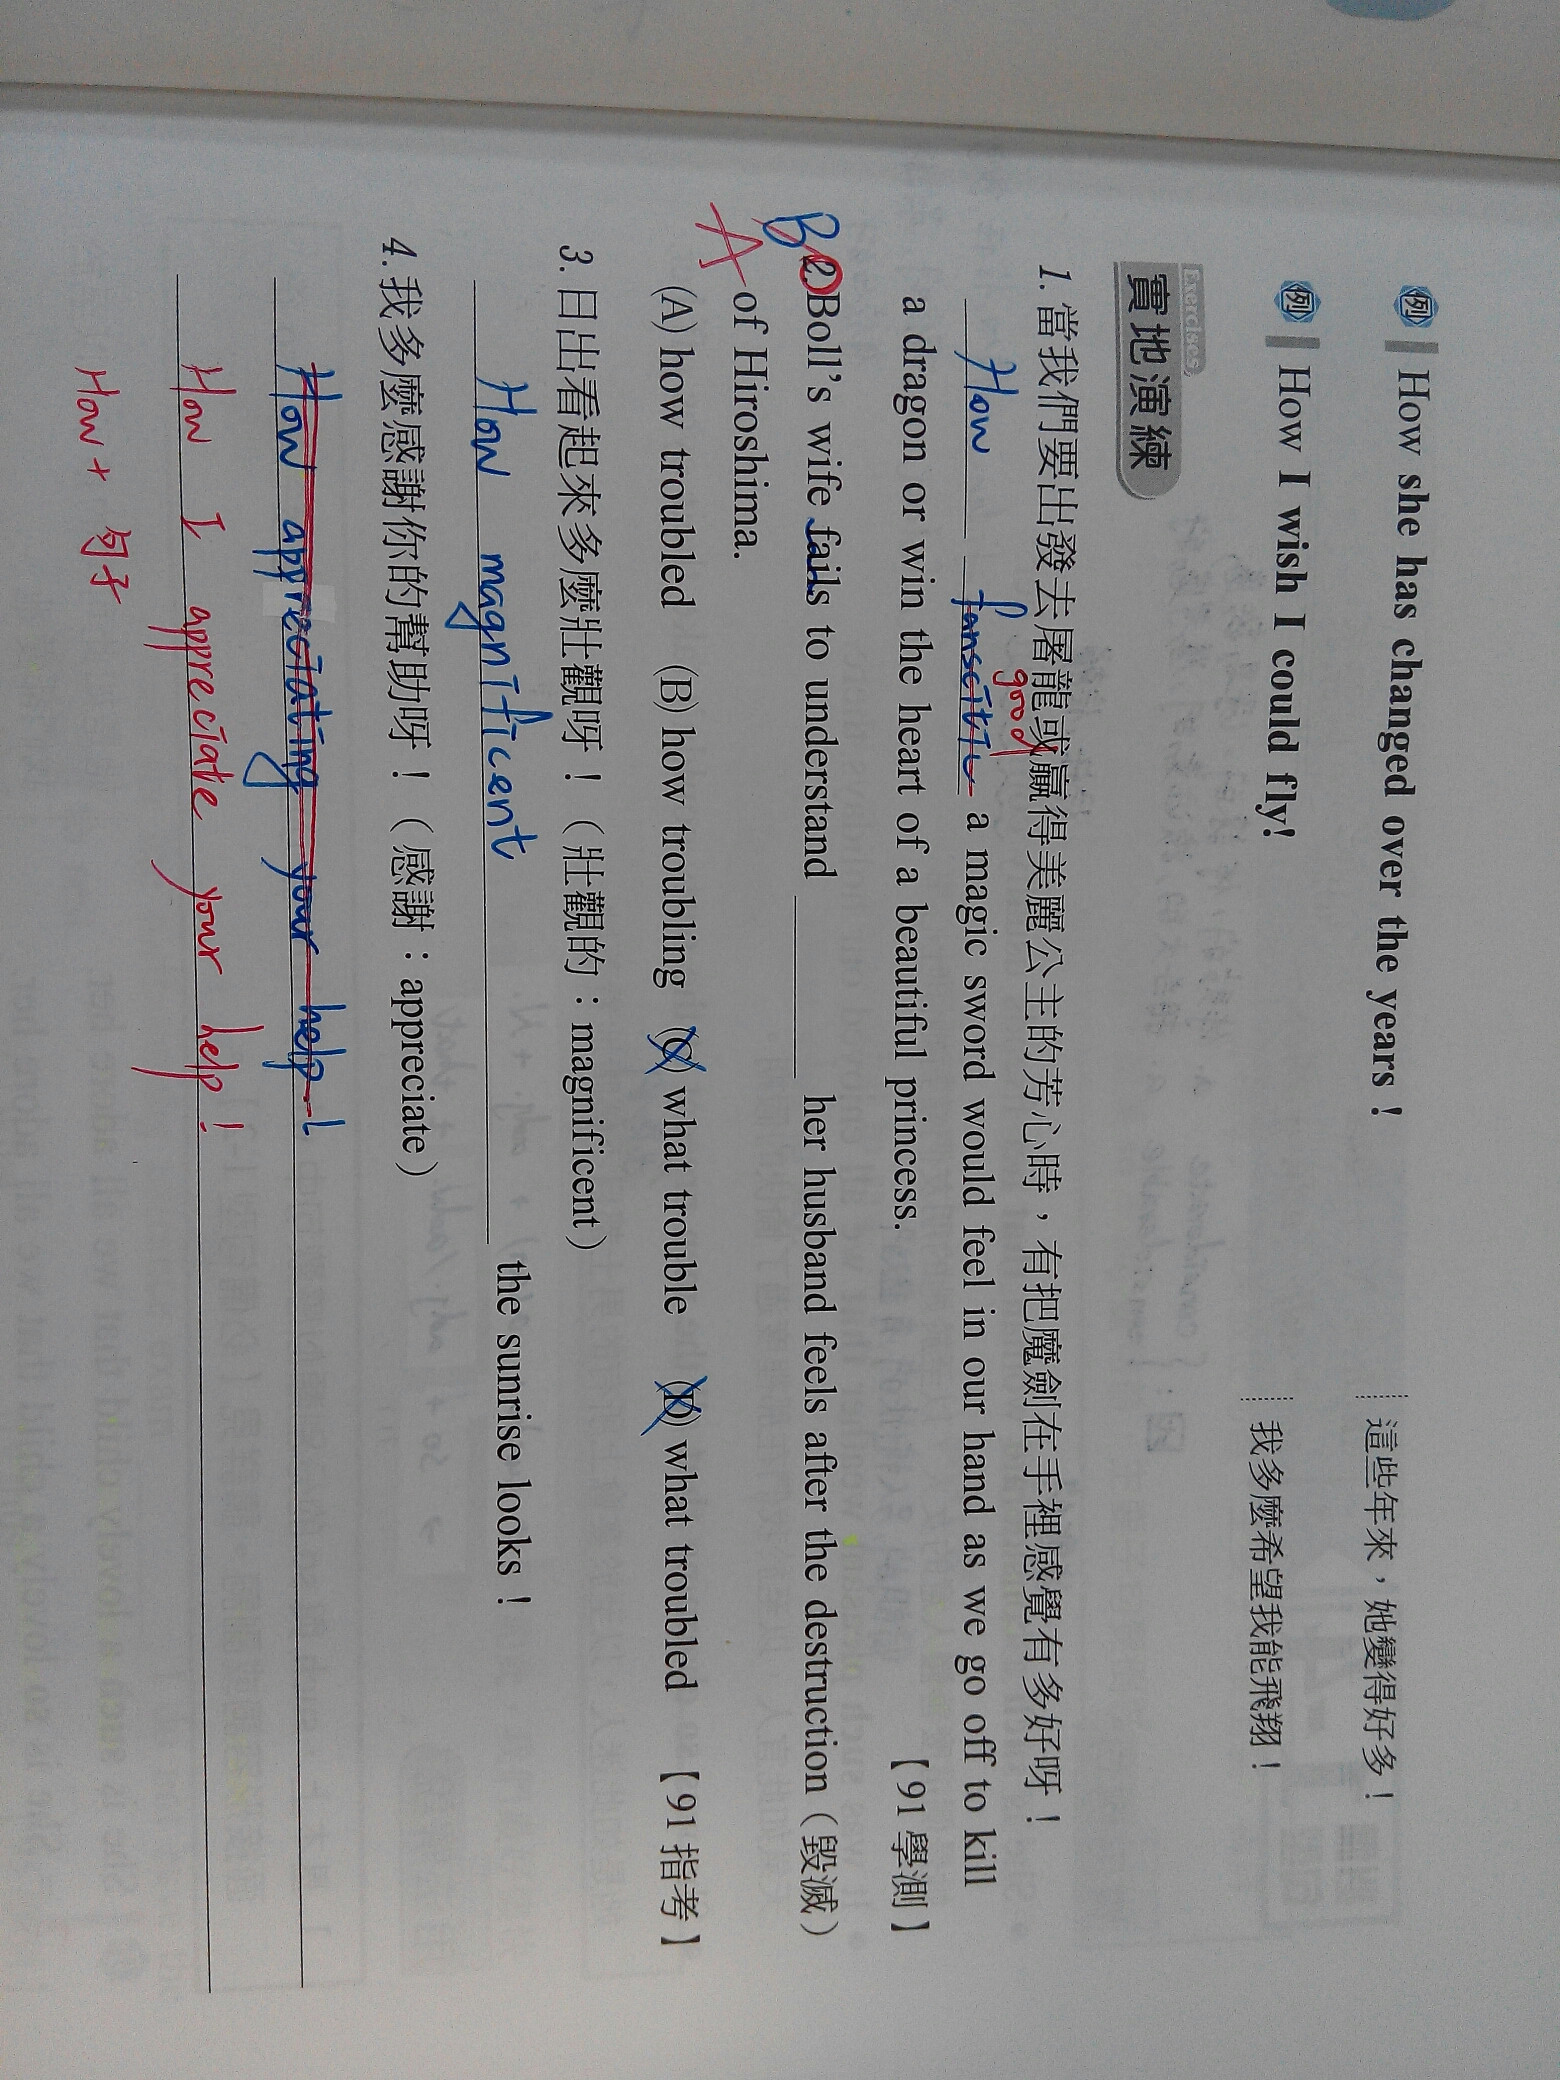 例 How she has changed over the years! 這些年來，她變得好多！
例 How I wish I could fly! 我多麼希望我能飛翔！
Exercises
實地演練
1. 當我們要出發去屠龍或贏得美麗公主的芳心時，有把魔劍在手裡感覺有多好呀！
good
How fanscitic a magic sword would feel in our hand as we go off to kill
a dragon or win the heart of a beautiful princess. 【91 學測】
B 2. Boll's wife fails to understand ______ her husband feels after the destruction（毀滅）
A of Hiroshima.
(A) how troubled (B) how troubling (C) what trouble (D) what troubled 【91 指考】
3. 日出看起來多麼壯觀呀！（壯觀的：magnificent）
How magnificent the sunrise looks！
4. 我多麼感謝你的幫助呀！（感謝：appreciate）
How appreciating your help!
How I appreciate your help!
How + 句子